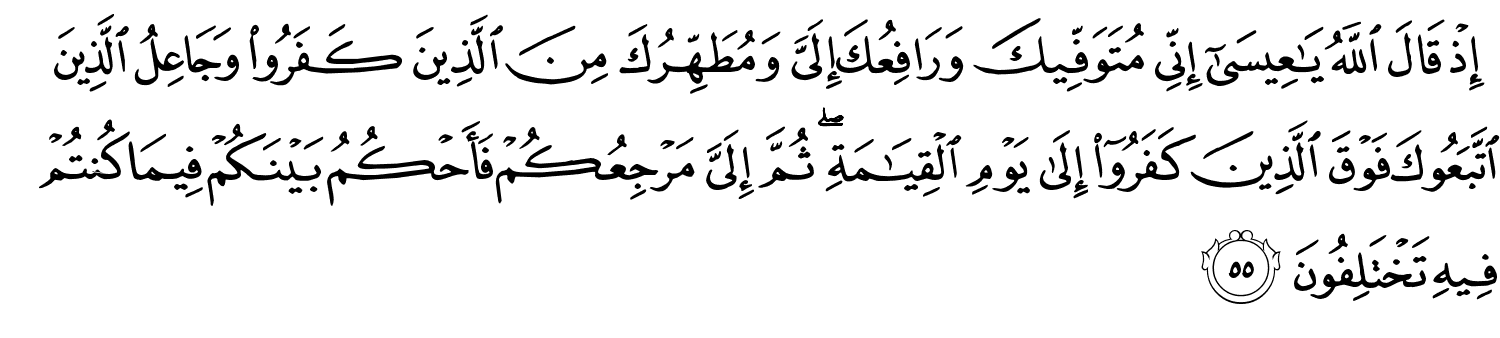 إِذْ قَالَ ٱللَّهُ يَـٰعِيسَىٰٓ إِنِّى مُتَوَفِّيكَ وَرَافِعُكَ إِلَىَّ وَمُطَهِّرُكَ مِنَ ٱلَّذِينَ كَفَرُوا۟ وَجَاعِلُ ٱلَّذِينَ
ٱتَّبَعُوكَ فَوْقَ ٱلَّذِينَ كَفَرُوٓا۟ إِلَىٰ يَوْمِ ٱلْقِيَـٰمَةِ ۖ ثُمَّ إِلَىَّ مَرْجِعُكُمْ فَأَحْكُمُ بَيْنَكُمْ فِيمَا كُنتُمْ
فِيهِ تَخْتَلِفُونَ ٥٥